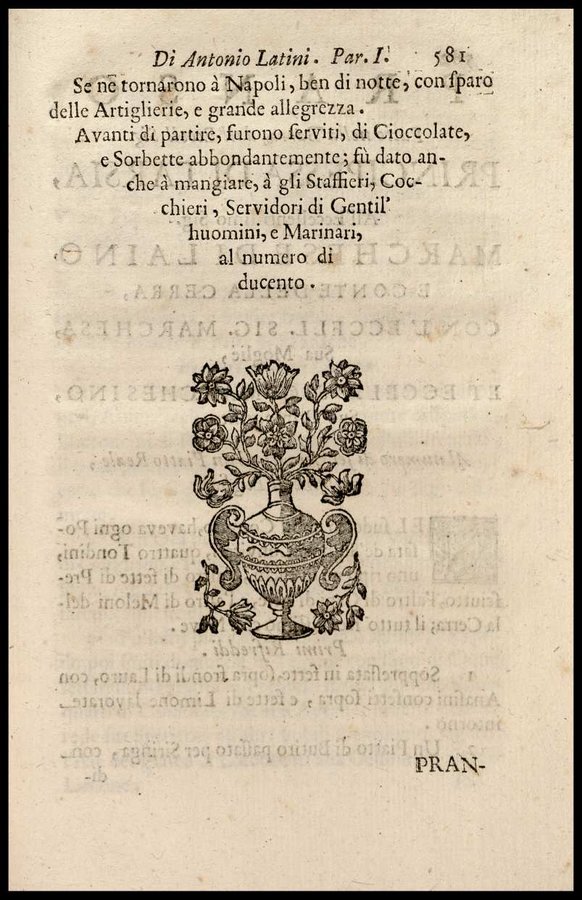 Di Antonio Latini. Par. I. 581
Se ne tornarono à Napoli, ben di notte, con ſparo
delle Artiglierie, e grande allegrezza.
Avanti di partire, furono ſerviti, di Cioccolate,
e Sorbette abbondantemente; fù dato an-
che à mangiare, à gli Staffieri, Coc-
chieri, Servidori di Gentil'
huomini, e Marinari,
al numero di
ducento.
PRAN-